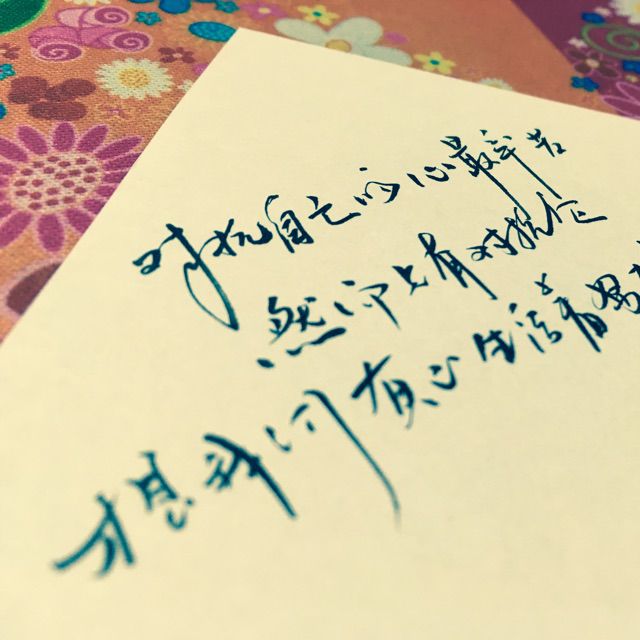 对抗自己的心最辛苦
然而只有对抗它
才是我们真心生活着